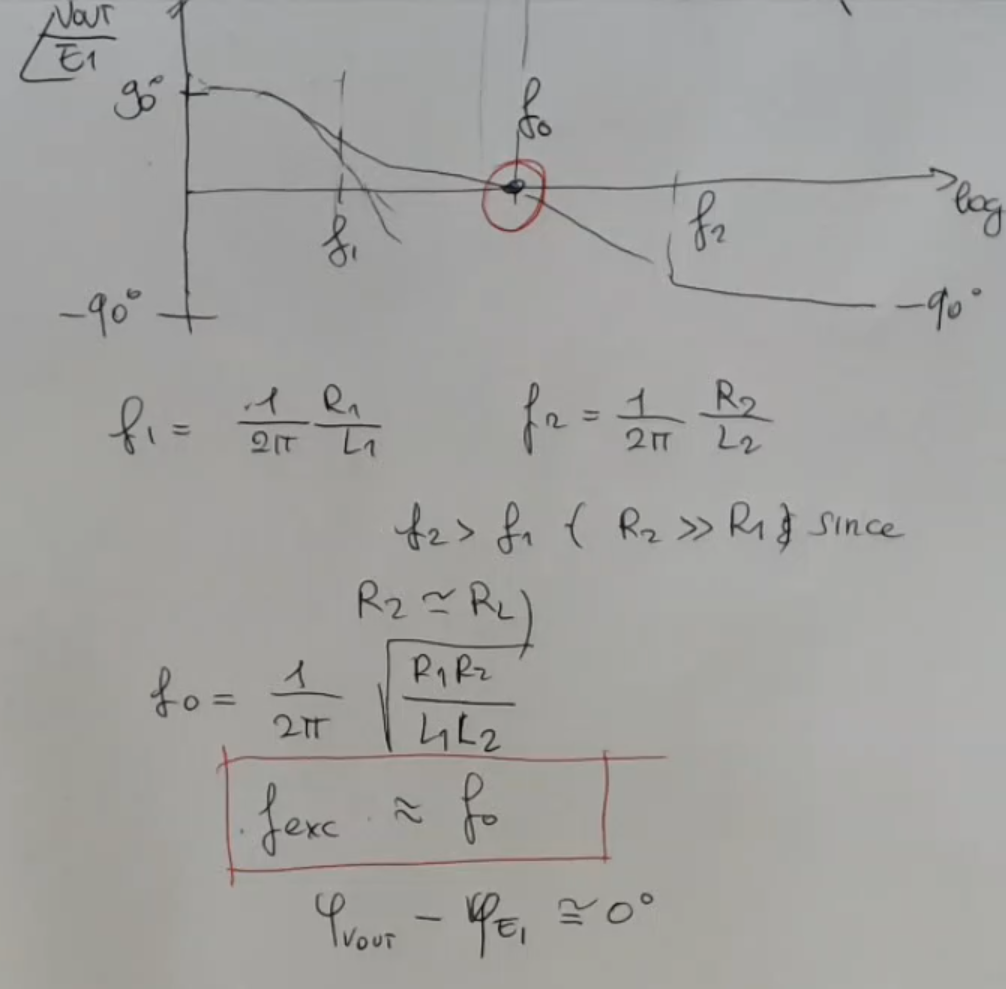 ∠ VOUT / E1
90°
f0
f1
f2
log
-90°
-90°
f1 = 1/2π R1/L1
f2 = 1/2π R2/L2
f2 > f1 ( R2 >> R1 } since
R2 ≃ RL )
f0 = 1/2π √(R1R2 / L1L2)
fexc ≈ f0
φVOUT - φE1 ≅ 0°